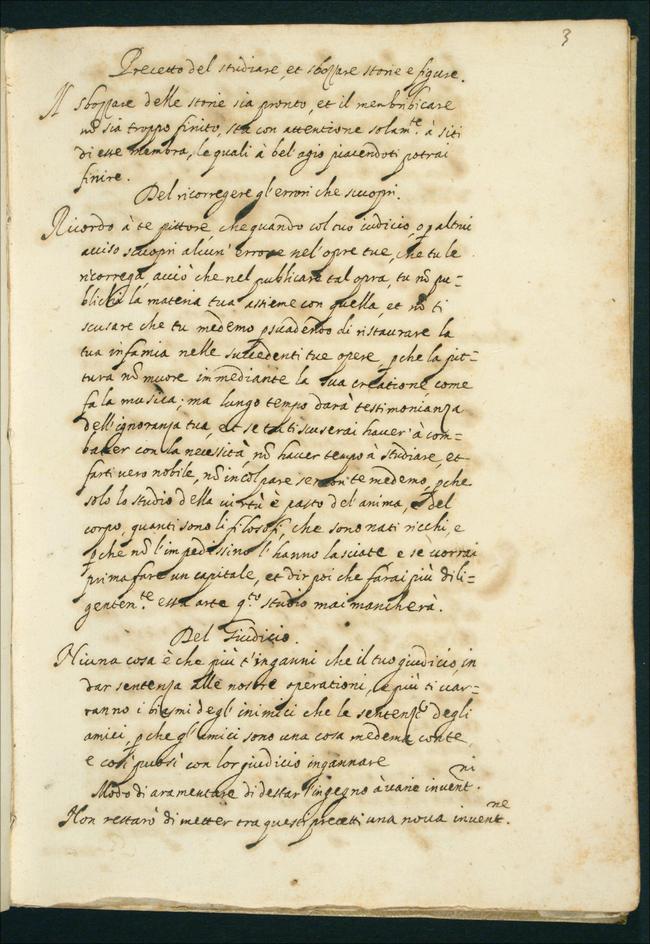 3
Precetto del studiare, et sbozzare storie e figure.
Il sbozzare delle storie sia pronto, et il menbribicare
nõ sia troppo finito, sta con attentione solam.te à siti
di esse membra, le quali à bel agio piacendoti potrai
finire.
Del ricorregere gl'errori che scuopri.
Ricordo à te pittore, che quando col tuo iudicio, o p altrui
aviso scuopri alcun' errore nel'opre tue, che tu le
ricorrega, acciò che nel publicare tal opra, tu nõ pu-
blichi la materia tua assieme con quella, et nõ ti
scusare che tu medemo psuadendo di ristaurare la
tua infamia nelle succedenti tue opere, pche la pit-
tura nõ muore immediante la sua creatione come
fa la musica; ma lungo tempo darà testimonianza
dell'ignoranza tua, et se tu ti scuserai haver' à com-
batter con la necessità, nõ haver tempo a studiare, et
farti vero nobile, nõ incolpare se non te medemo, pche
solo lo studio della virtù è pasto del'anima, e del
corpo, quanti sono li filosofi, che sono nati ricchi, e
pche nõ l'impedissino l'hanno lasciate e se vorrai
prima fare un capitale, et dir poi che farai più dili-
genten.te essa arte q.to studio mai mancherà.
Del Giudicio.
Niuna cosa è che più t'inganni che il tuo giudicio, in
dar sentenza alle nostre operationi, le più ti var-
ranno i biesmi degl' inimici che le sentenze degli
amici, pche gl'amici sono una cosa medema con te,
e così puosi con lor giudicio ingannare
Modo di aramentare di destar l'ingegno à varie invent.ni
Non restarò di metter tra questi precetti una nova invent.ne